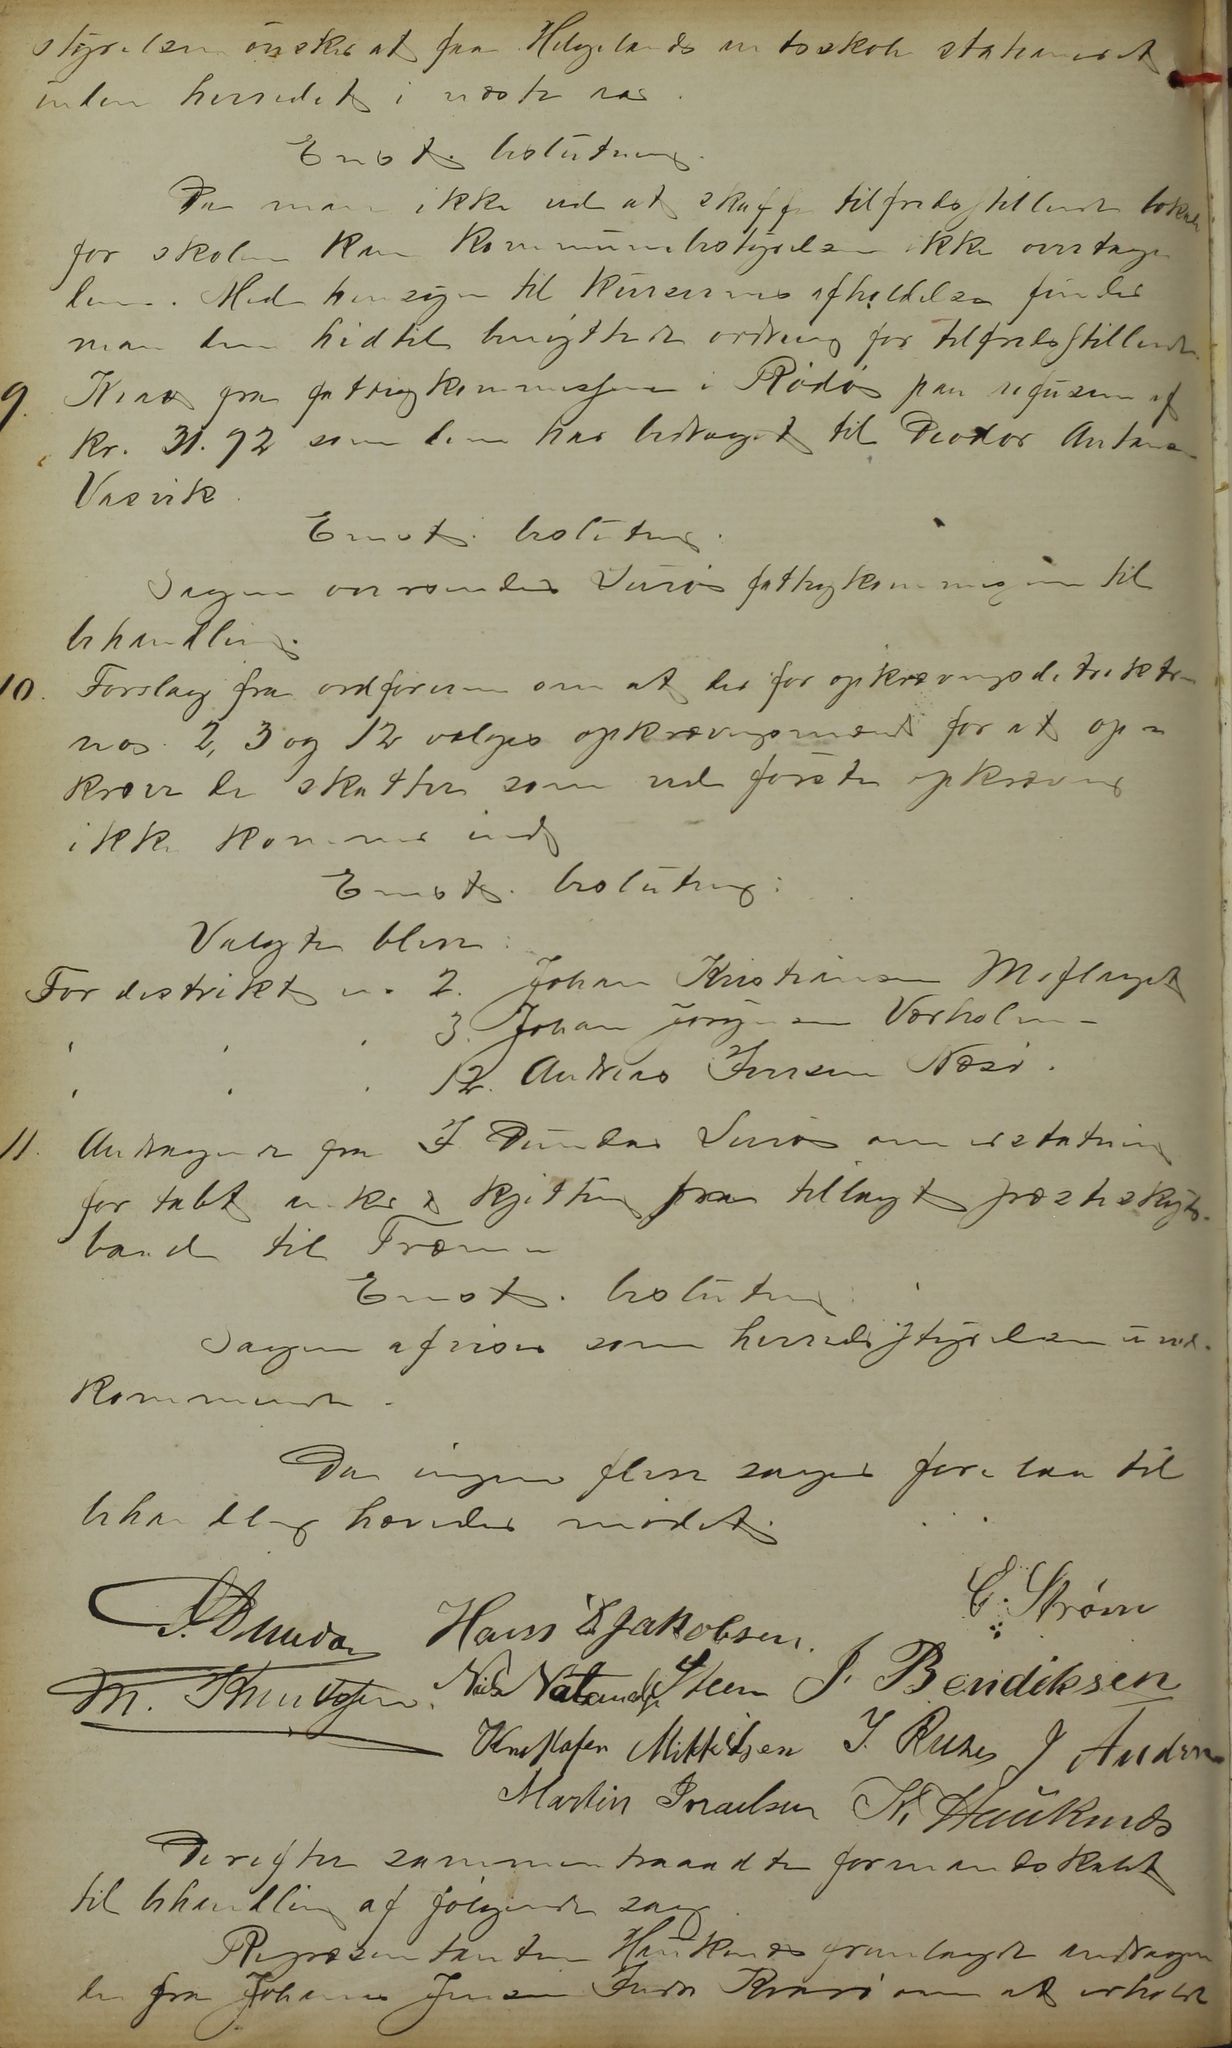 styrelsen ønsker at faa Helgelands amtsskole stationeret
inden herredet i næste aar.
Enst. beslutning.
Da man ikke ved at skaffe tilfredsstillende lokale
for skolen kan kommunebestyrelsen ikke overtage
den. Med hensyn til kursernes afholdelse finder
man den hidtil benyttede ordning for tilfredsstillende.
9. Krav fra fattigkommissionen i Rødø paa refusion af
kr. 31.92 som den har bidraget til Peder Antonsen
Vasvik.
Enst. beslutning.
Sagen oversendes Lurøs fattigkommission til
behandling.
10. Forslag fra ordføreren om at der for opkrævningsdistrikterne
nos. 2, 3 og 12 vælges opkrævningsmænd for at op-
kræve de skatter som ved første opkrævning
ikke kommer ind
Enst. beslutning:
Valgte bleve:
For distrikt n. 2. Johan Kristiansen Moflaget
" " " 3. Johan Jørgensen Varholmen
" " " 12. Andreas Jensen Nesø.
11. Andragende fra I Dundas Lurø om erstatning
for tabt anker & kjetting fra tillagt præsteskyds-
baad til Trænen
Enst. beslutning:
Sagen afvises som herredsstyrelsen uved-
kommende.
Da ingen flere sager forelaa til
behandling hævedes mødet.
I. Dundas Hans E Jakobsen. E. Strøm
M. Knutsen. Nils Steen J. Bendiksen
Kristofer Mikkelsen J. J Anders
Martin Israelsen K. Hauknes
Derefter sammentraadte formandskabet
til behandling af følgende sag
Repræsentanten Haukenæs fremlagde andragen
de fra Johannes Jensen Indre Kvarø om at erholde